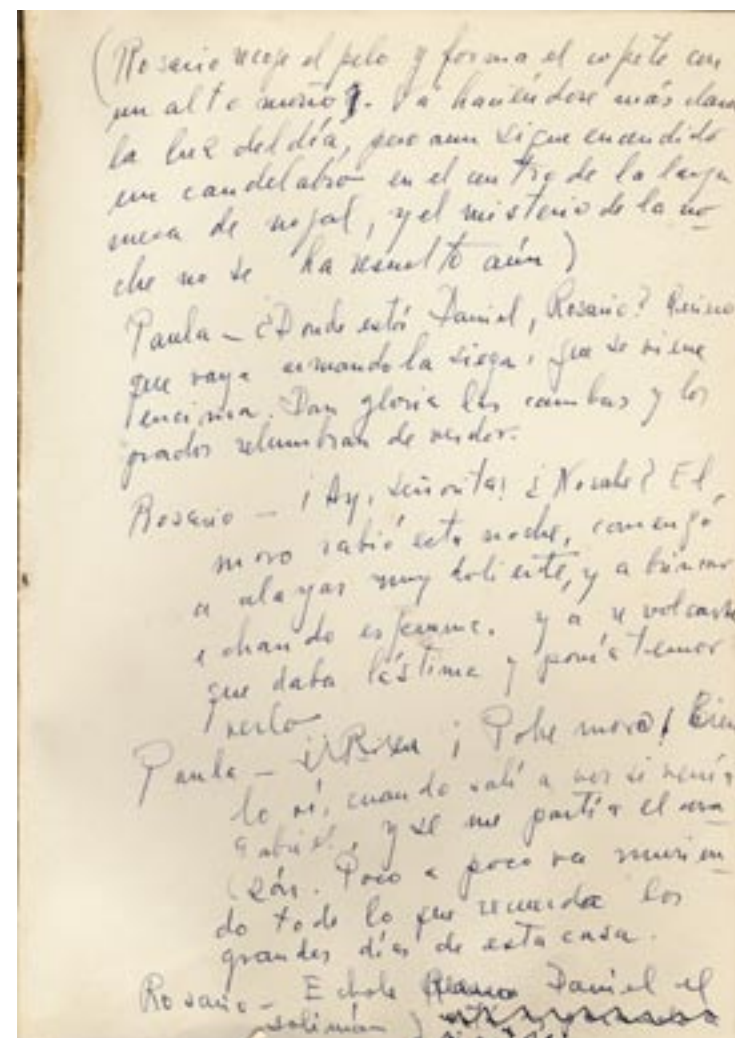 (Rosario recoje el pelo y forma el copete con
un alto moño). Vá haciéndose más clara
la luz del día, pero aun sigue encendido
un candelabro en el centro de la larga
mesa de nogal, y el misterio de la no-
che no se ha resuelto aún)
Paula – ¿Donde está Daniel, Rosario? Quiero
que vaya armando la siega, que se viene
encima. Dan gloria las cambas y los
prados relumbran de verdor.
Rosario – ¡Ay, señorita! ¿No sabe? El
moro rabió esta noche, comenzó
a muy doliente, y a
echando espuma. y a volcarse
que daba lástima y ponía temor
verlo
Paula – ¡Pobre moro! Bien
lo ví, cuando salí a ver si venía
Gabriel, y se me partía el cora-
zón. Poco a poco va murien-
do todo lo que recuerda los
grandes días de esta casa.
Rosario – Echole Daniel el
solimán